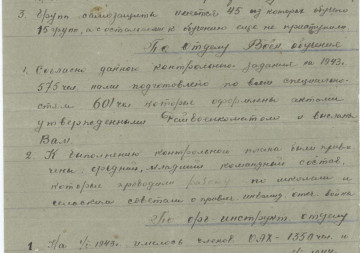 3. Групп самозащиты имеется 45 из которых обучено
15 групп, а с остальными к обучению еще не приступили.
По отделу Воен. обучения
1. Согласно данного контрольного задания на 1943.
575 чел. нами подготовлено по всем специально-
стям 601 чел. которые оформлены актами
утвержденными Райвоенкоматом и высланы
Вам.
2. К выполнению контрольного плана были привле-
чены средний, младший командный состав,
которые проводили работу по школам и
сельским советам с привл. инвалид. отеч. войны
По орг-инструкт. отделу
1. На 1/I 1943г. имелось членов ОАХ - 1350 чел.